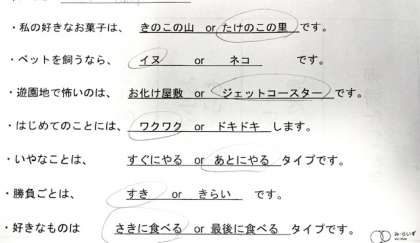 ・私の好きなお菓子は、 きのこの山 or たけのこの里 です。
・ペットを飼うなら、 イヌ or ネコ です。
・遊園地で怖いのは、 お化け屋敷 or ジェットコースター です。
・はじめてのことには、 ワクワク or ドキドキ します。
・いやなことは、 すぐにやる or あとにやる タイプです。
・勝負ごとは、 すき or きらい です。
・好きなものは さきに食べる or 最後に食べる タイプです。
み・らいず